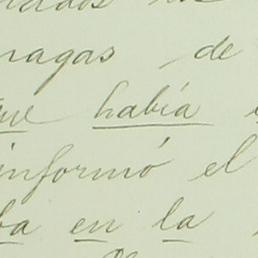 nagas de
que había
informó el
ba en la